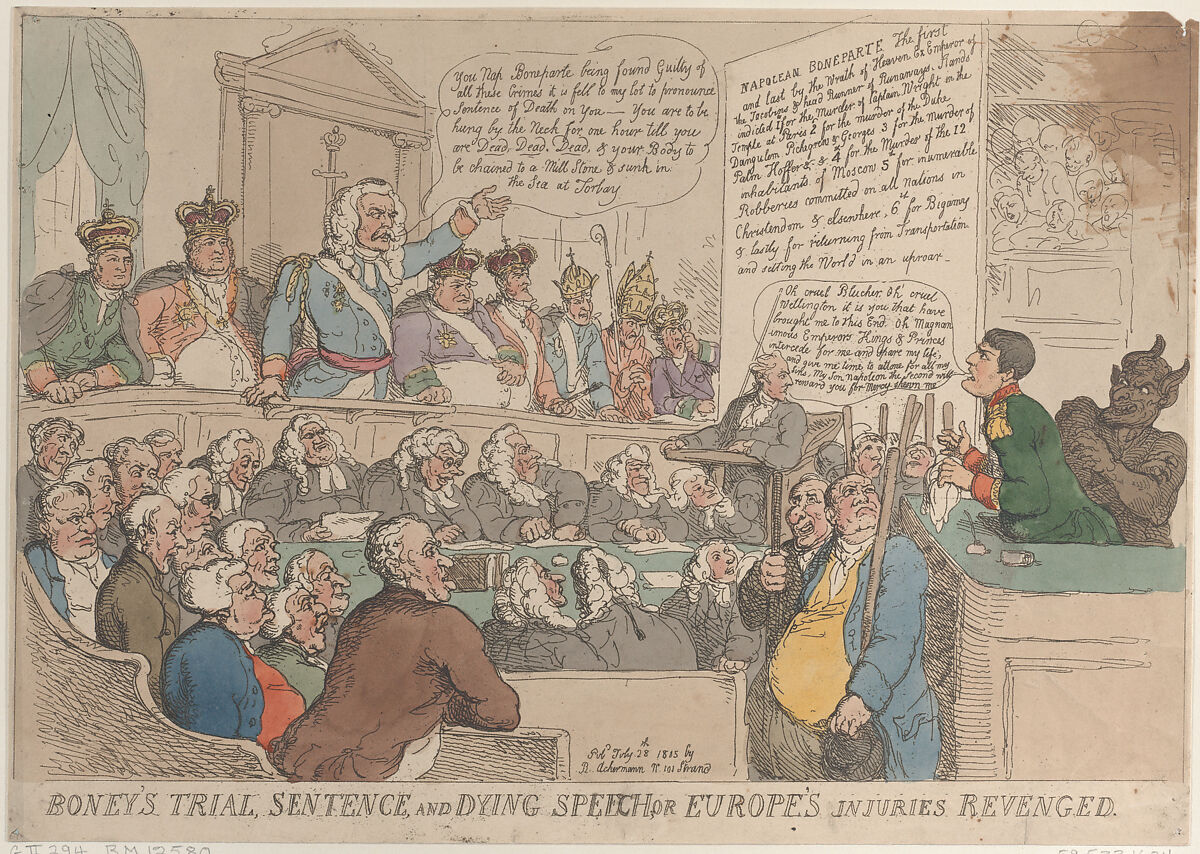 You Nap Boneparte being found Guilty of
all these Crimes it is fell to my lot to pronounce
Sentence of Death on You — You are to be
hung by the Neck for one hour till you
are Dead, Dead. Dead, & your Body to
be chained to a Mill Stone & sunk in
the Sea at Torbay
NAPOLEAN BONEPARTE The first
and last by the Wrath of Heaven Ex Emperor of
the Jacobins & head Runner of Runaways. Stands
indicted 1st for the Murder of Captain Wright in the
Temple at Paris 2 for the murder of the Duke
Dangulem Pichegrew & Georges 3 for the Murder of
Palm Hoffer &c &c 4 for the Murder of the 12
inhabitants of Moscow 5th for inumerable
Robberies committed on all Nations in
Christendom & elsewhere. 6th for Bigamy
& lastly for returning from Transportation
and setting the World in an uproar —
Oh cruel Blucher. Oh cruel
Wellington it is you that have
brought me to this End. Oh Magnan
imous Emperors Kings & Princes
intercede for me and spare my life;
and give me time to attone for all my
Sins. My Son Napoleon the Second will
reward you for Mercy shewn me
Pubd July 28th 1815 by
R. Ackermann No 101 Strand
BONEY'S TRIAL, SENTENCE, AND DYING SPEECH, OR EUROPE'S INJURIES REVENGED.
G II 294 BM 12580